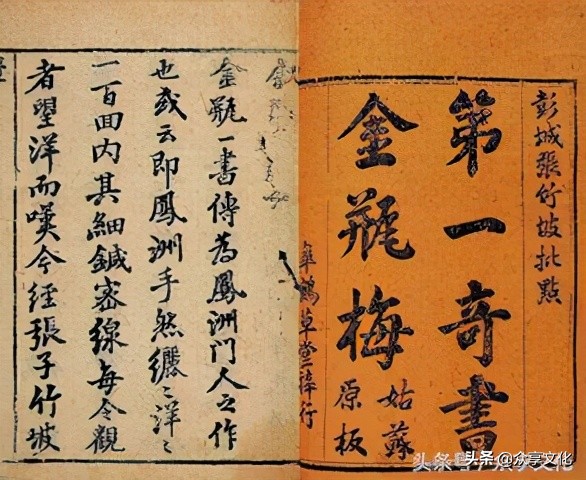 彭城張竹坡批點
第一奇書
金瓶梅
姑蘇
原板
草堂梓行
金瓶一書傳為鳳洲門人之作
也或云即鳳洲手然纚〻洋〻
一百回內其細鍼密線每令觀
者望洋而嘆今經張子竹坡
头条@众享文化